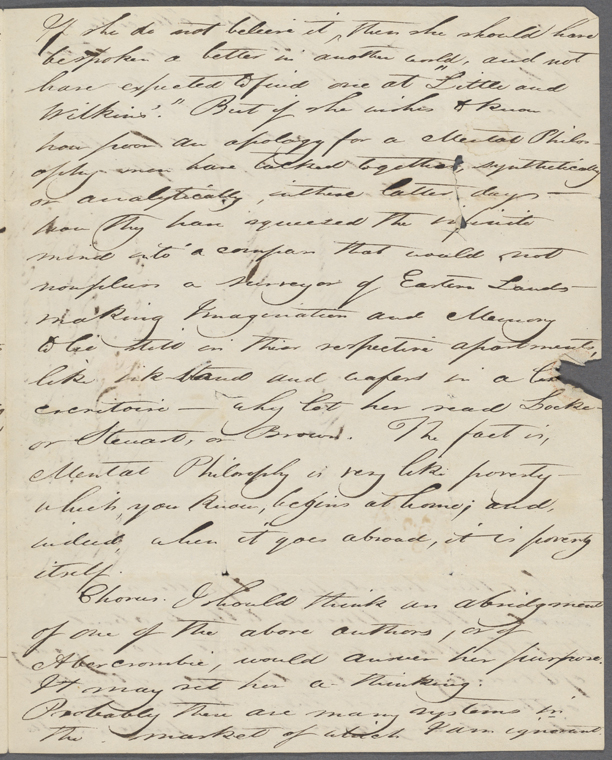 If she do not believe it, then she should have
bespoken a better in another world, and not
have expected to find one at "Little and
Wilkins'." But if she wishes to know
how poor an apology for a Mental Philos-
ophy men have tacked together, synthetically
or analytically, in these latter days —
how they have squeezed the infinite
mind into a compass that would not
nonpluss a surveyor of Eastern Lands —
making Imagination and Memory
to lie still in their respective apartments,
like ink stand and wafers in a
escritoire — why let her read Locke —
or Stewart, or Brown. The fact is,
Mental Philosophy is very like poverty —
which, you know, begins at home; and,
indeed, when it goes abroad, it is poverty
itself.
Chorus. I should think an abridgment
of one of the above authors, or of
Abercrombie, would answer her purpose.
It may set her a-thinking.
Probably there are many systems in
the market of which I am ignorant.